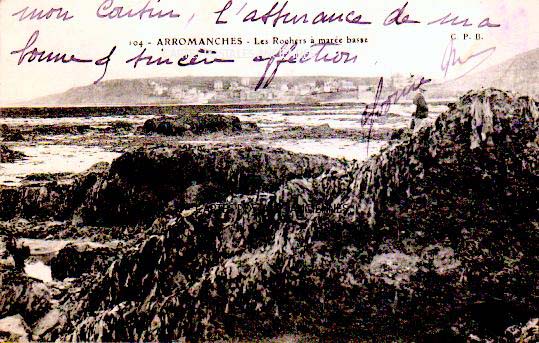 mon Cousin, l'assurance de ma
104 - ARROMANCHES - Les Rochers à marée basse
C. P. B.
bonne & sincère affection.